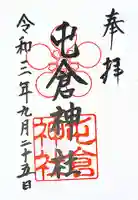 奉拝
屯倉神社
屯倉
神社
令和二年九月二十五日